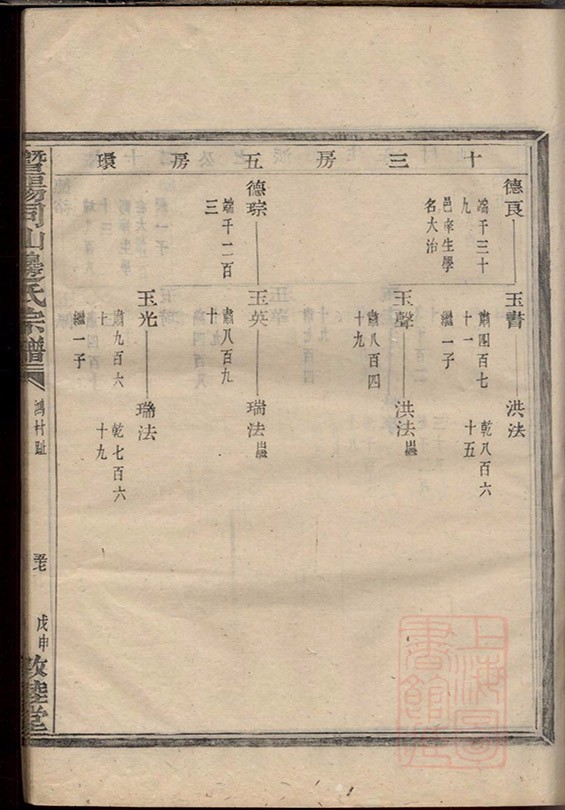 十三房五房環
德良
端千三十
九
邑庠生學
名大治
玉書
肅四百七
十一
繼一子
洪法
乾八百六
十五
玉聲
肅八百四
十九
洪法出繼
德琮
端千二百
三
玉英
肅八百九
十
瑞法出繼
玉光
肅九百六
十
繼一子
瑞法
乾七百六
十九
暨陽同山邊氏宗譜
鴻村趾
戊申
敦睦堂
上海圖書館藏